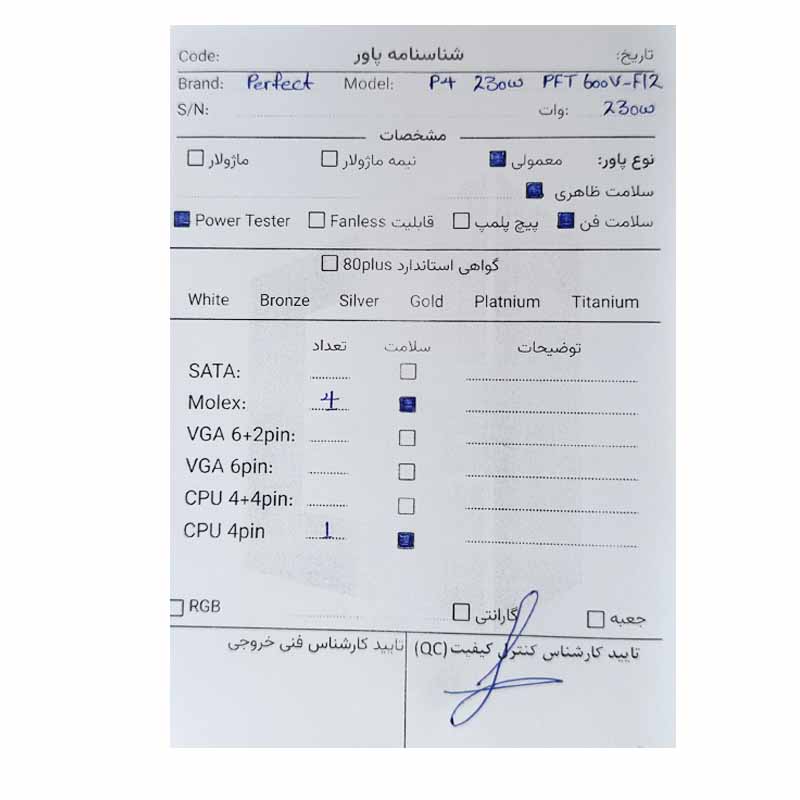 Code: شناسنامه پاور تاریخ:
Brand: Perfect Model: P4 230W PFT 600V-F12
S/N: وات: 230W
مشخصات
نوع پاور: معمولی نیمه ماژولار ماژولار
سلامت ظاهری
سلامت فن پیچ پلمپ قابلیت Fanless Power Tester
گواهی استاندارد 80plus
White Bronze Silver Gold Platnium Titanium
تعداد سلامت توضیحات
SATA:
Molex: 4
VGA 6+2pin:
VGA 6pin:
CPU 4+4pin:
CPU 4pin 1
جعبه گارانتی RGB
تایید کارشناس کنترل کیفیت (QC) تایید کارشناس فنی خروجی